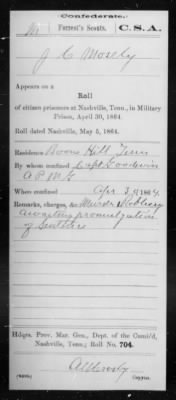 Confederate.
M Forrest's Scouts. C. S. A.
J C Mosely
Appears on a
Roll
of citizen prisoners at Nashville, Tenn., in Military
Prison, April 30, 1864.
Roll dated Nashville, May 5, 1864.
Residence Boons Hill Tenn
By whom confined Capt Goodwin
A P M G
When confined Apr 3, 1864.
Remarks, charges, &c. Murder & Robbery
awaiting promulgation
of Sentence
Hdqrs. Prov. Mar. Gen., Dept. of the Cumb'd,
Nashville, Tenn.; Roll No. 704.
Copyist.